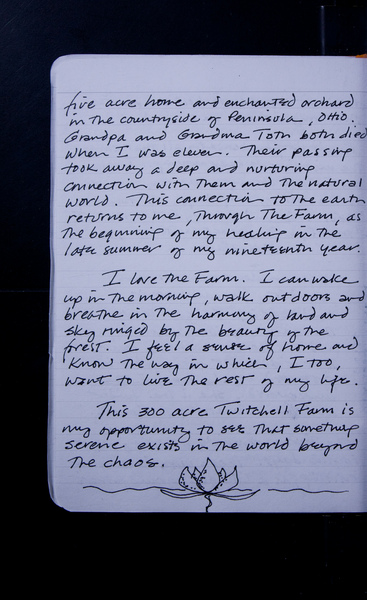 five acre home and enchanted orchard
in the countryside of Peninsula, Ohio.
Grandpa and Grandma Toth both died
when I was eleven. Their passing
took away a deep and nurturing
connection with them and the natural
world. This connection to the earth
returns to me, through The Farm, as
the beginning of my healing in the
late summer of my nineteenth year.
I love the Farm. I can wake
up in the morning, walk outdoors and
breathe in the harmony of land and
sky ringed by the beauty of the
forest. I feel a sense of home and
know the way in which, I too,
want to live the rest of my life.
This 300 acre Twitchell Farm is
my opportunity to see that something
serene exists in the world beyond
the chaos.